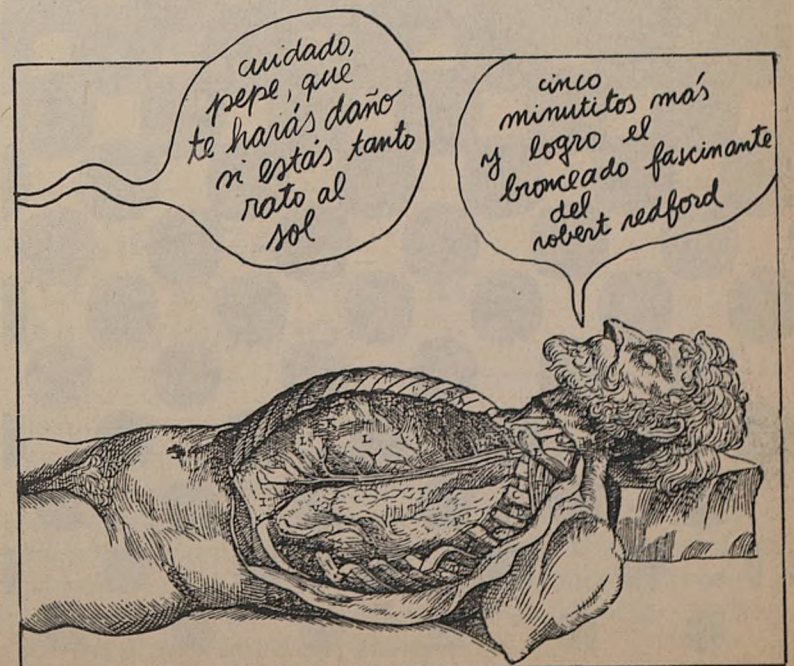 cuidado,
pepe, que
te harás daño
si estás tanto
rato al
sol
cinco
minutitos más
y logro el
bronceado fascinante
del
robert redford